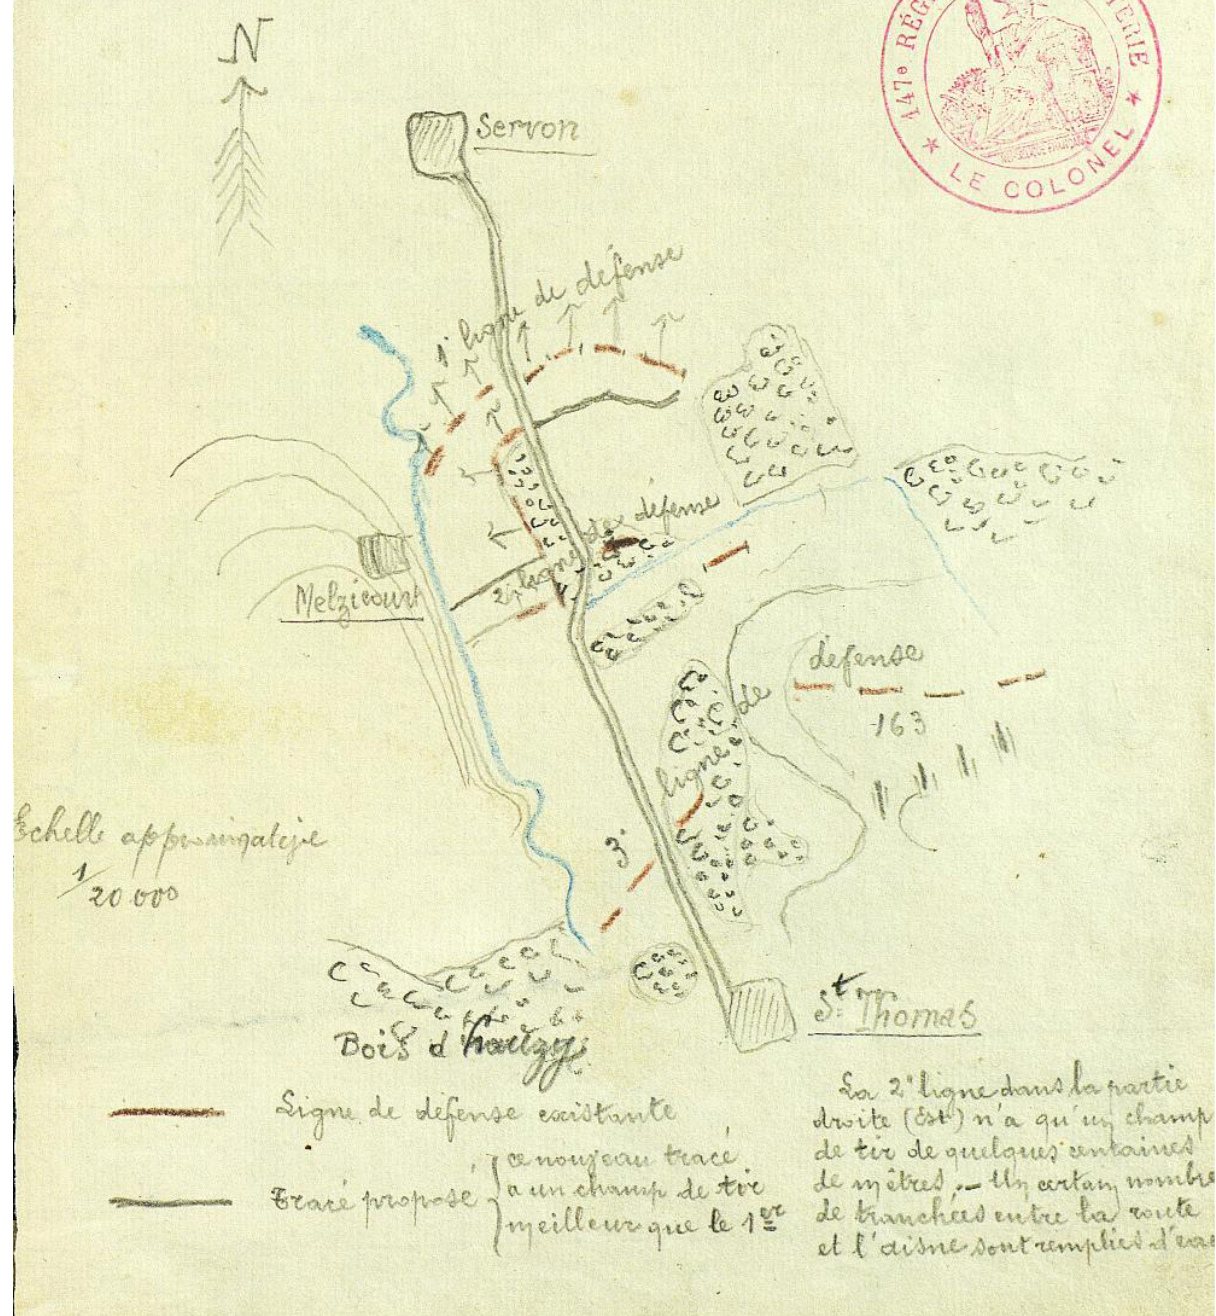 N
147e RÉG
ERIE
LE COLONEL
Servon
1° ligne de défense
2e ligne de défense
Melzicourt
défense
de
ligne
3°
163
Echelle approximative
1/20 000
Bois d'hauzy
St Thomas
Ligne de défense existante
Tracé proposé
ce nouveau tracé
a un champ de tir
meilleur que le 1er
La 2° ligne dans la partie
droite (Est) n'a qu'un champ
de tir de quelques centaines
de mètres.- Un certain nombre
de tranchées entre la route
et l'aisne sont remplies d'eau